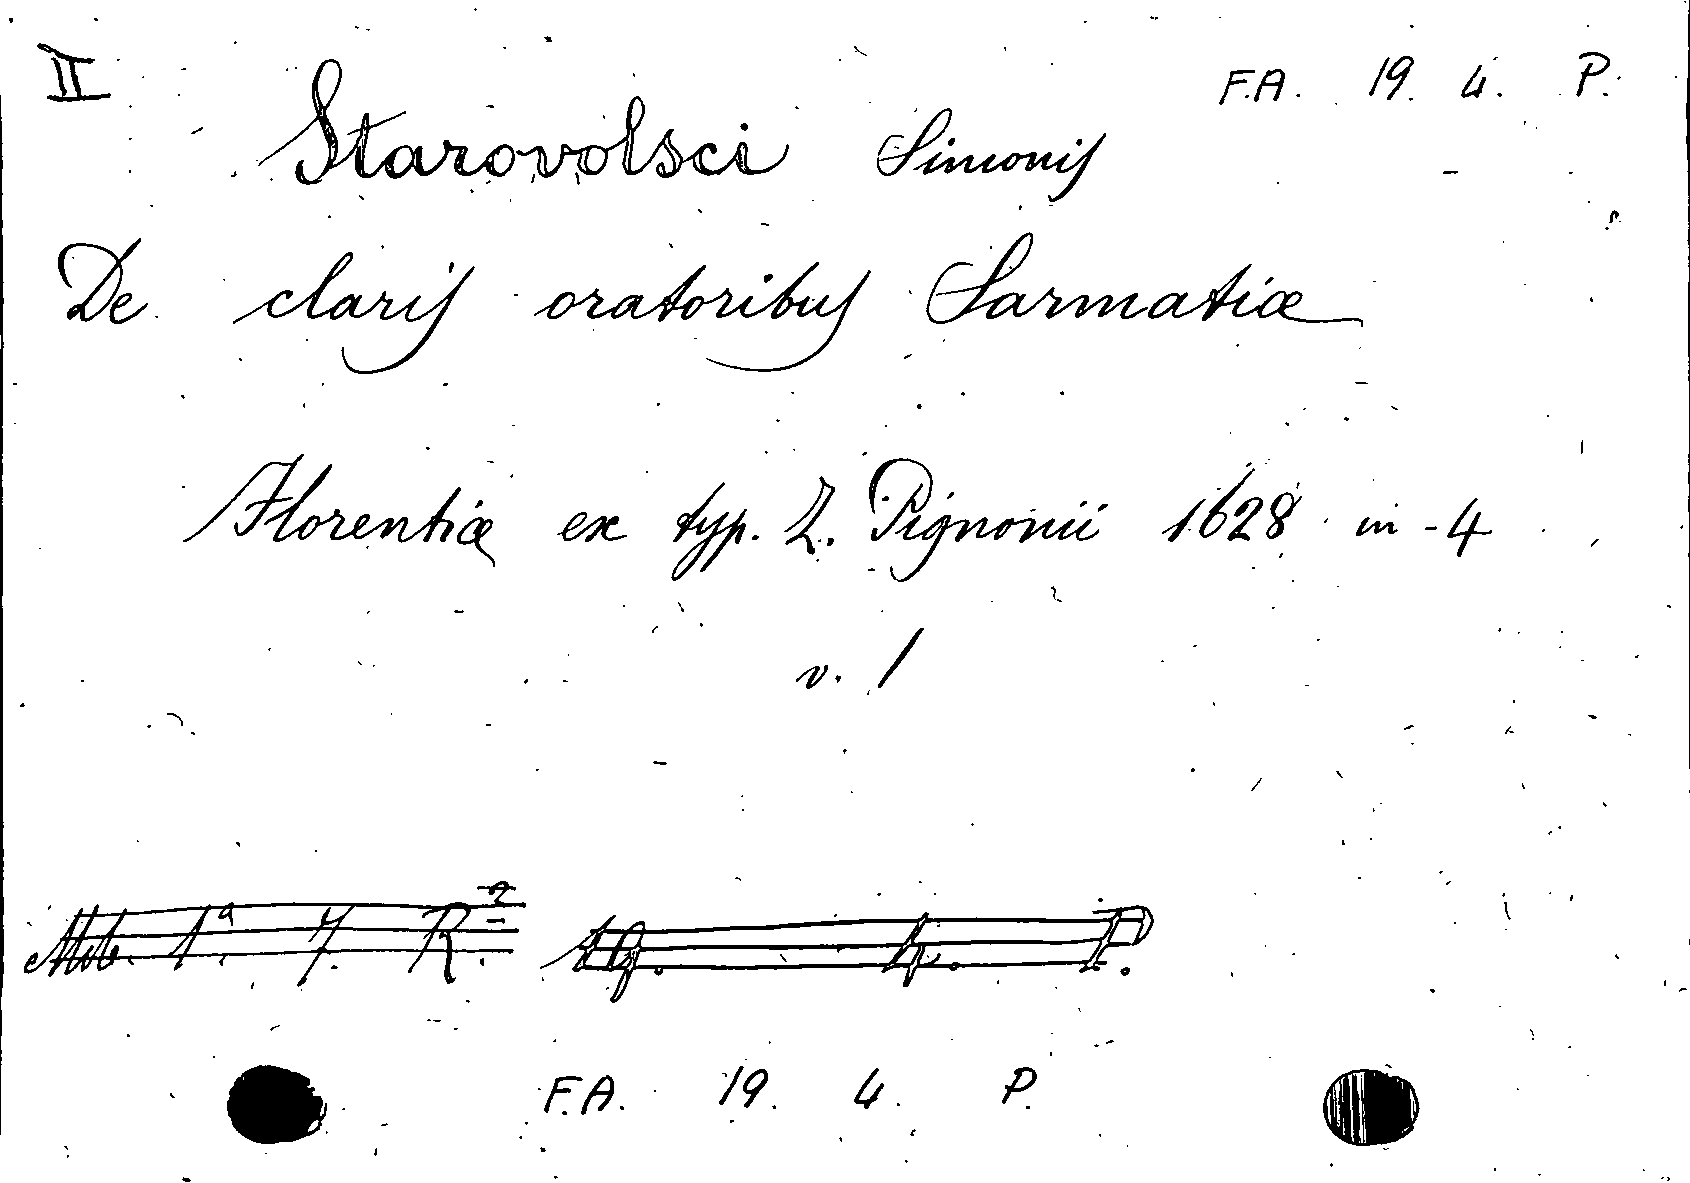 II F.A. 19. 4. P.
Starovolsci Simonis
De claris oratoribus Sarmatiæ
Florentiæ ex typ. Z. Pignonii 1628 in-4
v. 1
1ª. 7. R.² 19. 4. P.
F.A. 19. 4. P.